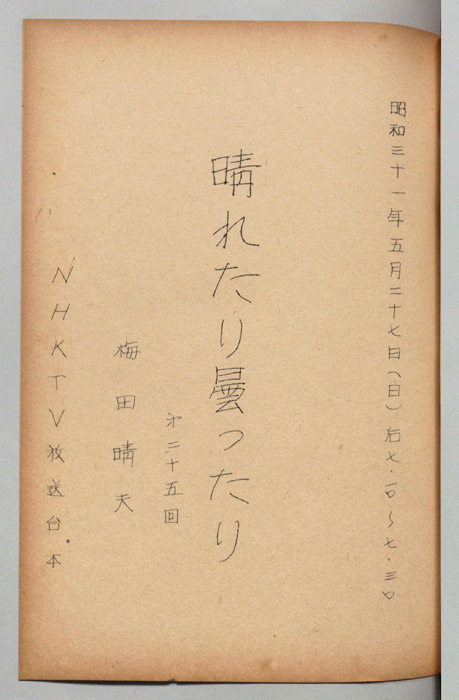 昭和三十一年五月二十七日(日)后七・一〇〜七・三〇
晴れたり曇ったり
才二十五回
梅田晴夫
NHKTV放送台本